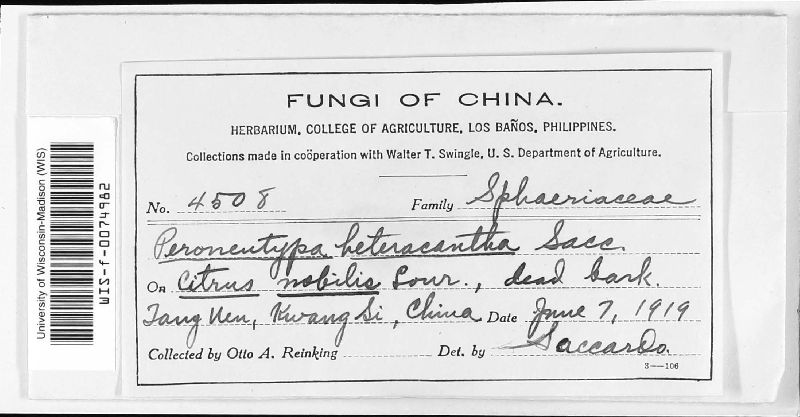 FUNGI OF CHINA.
HERBARIUM, COLLEGE OF AGRICULTURE, LOS BAÑOS, PHILIPPINES.
Collections made in coöperation with Walter T. Swingle, U. S. Department of Agriculture.
No. 4508 Family Sphaeriaceae
Peroneutypa heteracantha Sacc.
On Citrus nobilis Lour., dead bark.
Kwang Si, China Date June 7, 1919
Collected by Otto A. Reinking Det. by Saccardo.
3—106
University of Wisconsin-Madison (WIS)
WIS-f-0074982